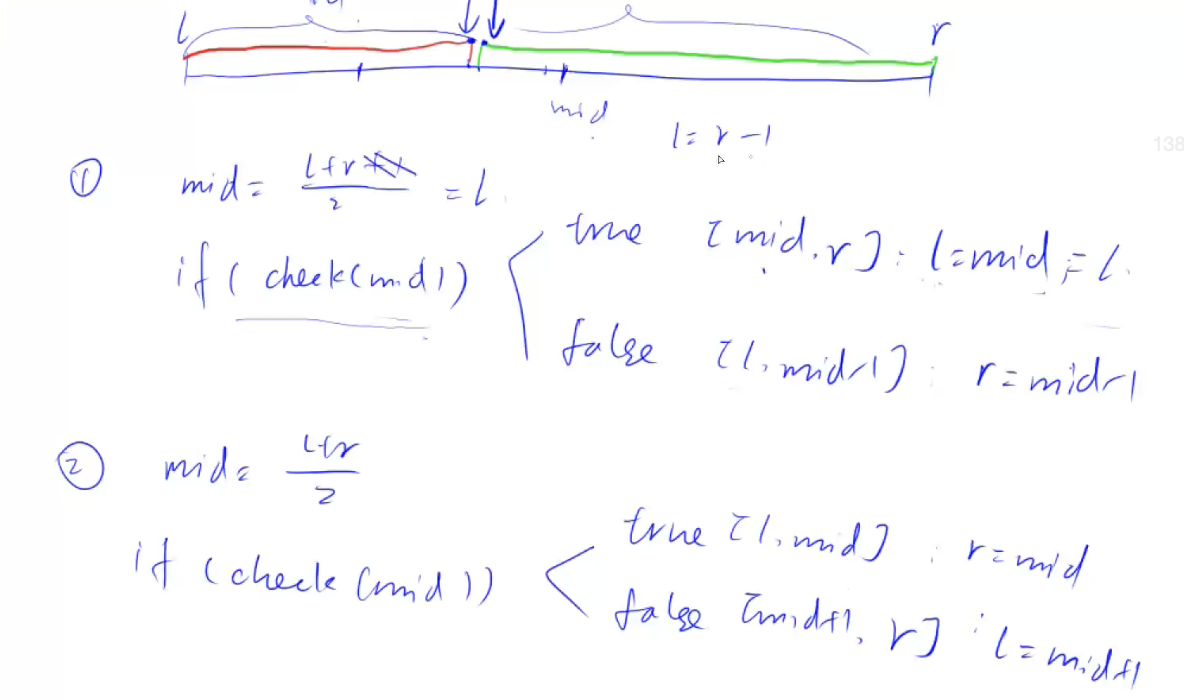 l r
mid
l = r - 1
138
① mid = l+r / 2 = l
if ( check(mid) ) true [mid, r] : l = mid = l.
false [l, mid-1] : r = mid-1
② mid = l+r / 2
if (check (mid)) true [l, mid] : r = mid
false [mid+1, r] : l = mid+1